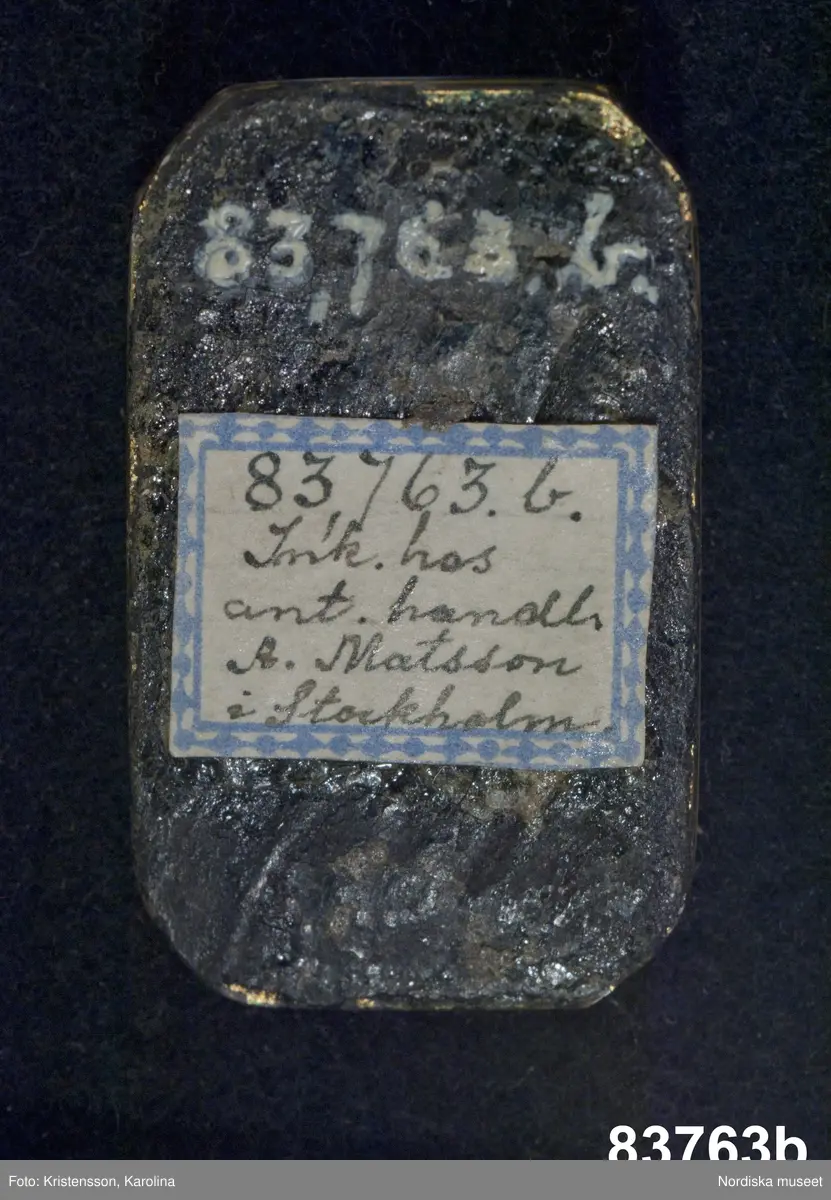 83,763.b.
83,763.b.
Ink. hos
ant. handl.
A. Matsson
i Stockholm.
83763b
Foto: Kristensson, Karolina
Nordiska museet